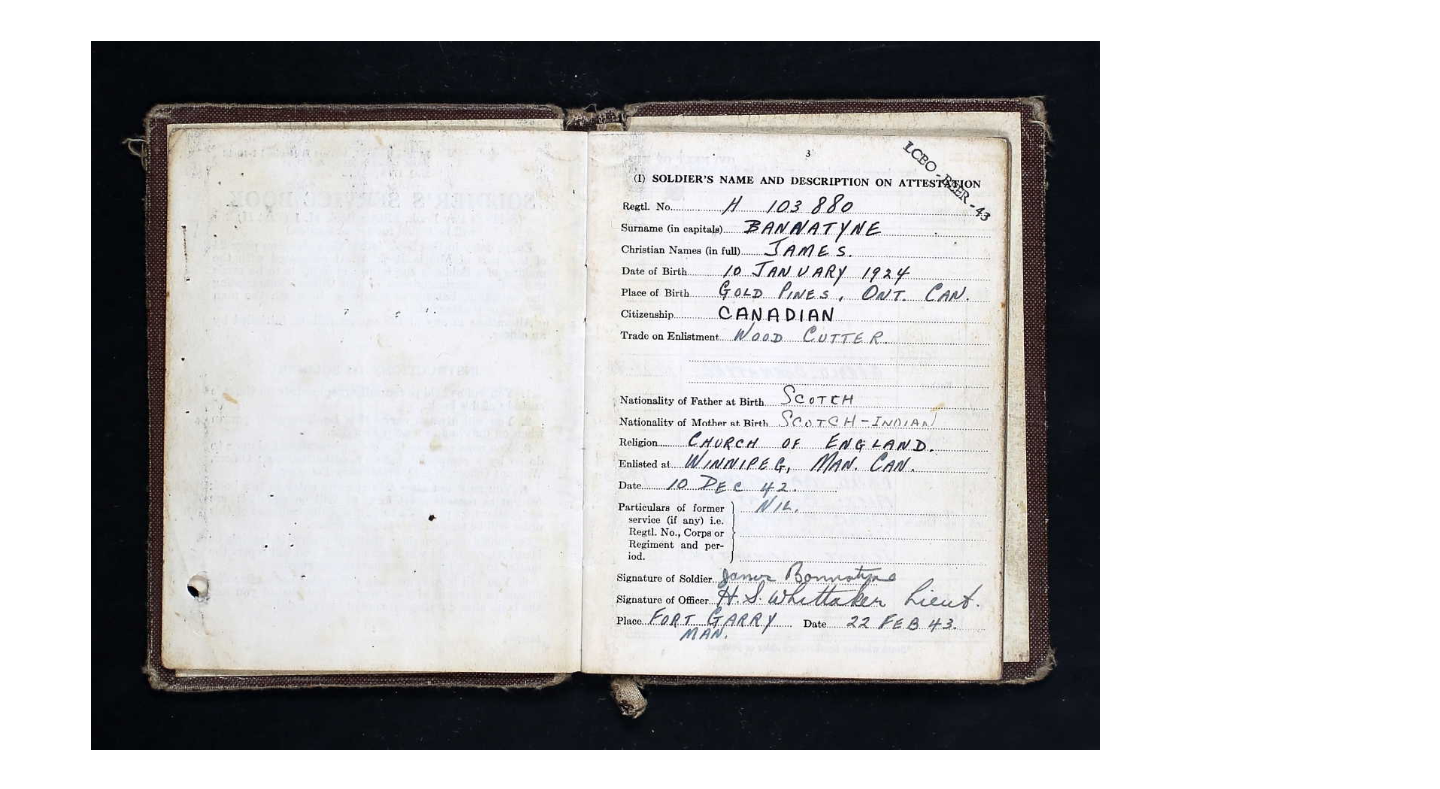 3
LCBO - BEER - 43
(I) SOLDIER'S NAME AND DESCRIPTION ON ATTESTATION
Regtl. No. H 103880
Surname (in capitals) BANNATYNE
Christian Names (in full) JAMES.
Date of Birth 10 JANUARY 1924
Place of Birth GOLD PINES, ONT. CAN.
Citizenship CANADIAN
Trade on Enlistment WOOD CUTTER.
Nationality of Father at Birth SCOTCH
Nationality of Mother at Birth SCOTCH-INDIAN
Religion CHURCH OF ENGLAND.
Enlisted at WINNIPEG, MAN. CAN.
Date 10 DEC 42.
Particulars of former NIL.
service (if any) i.e.
Regtl. No., Corps or
Regiment and per-
iod.
Signature of Soldier James Bannatyne
Signature of Officer H. S. Whittaker Lieut.
Place FORT GARRY Date 22 FEB 43.
MAN.